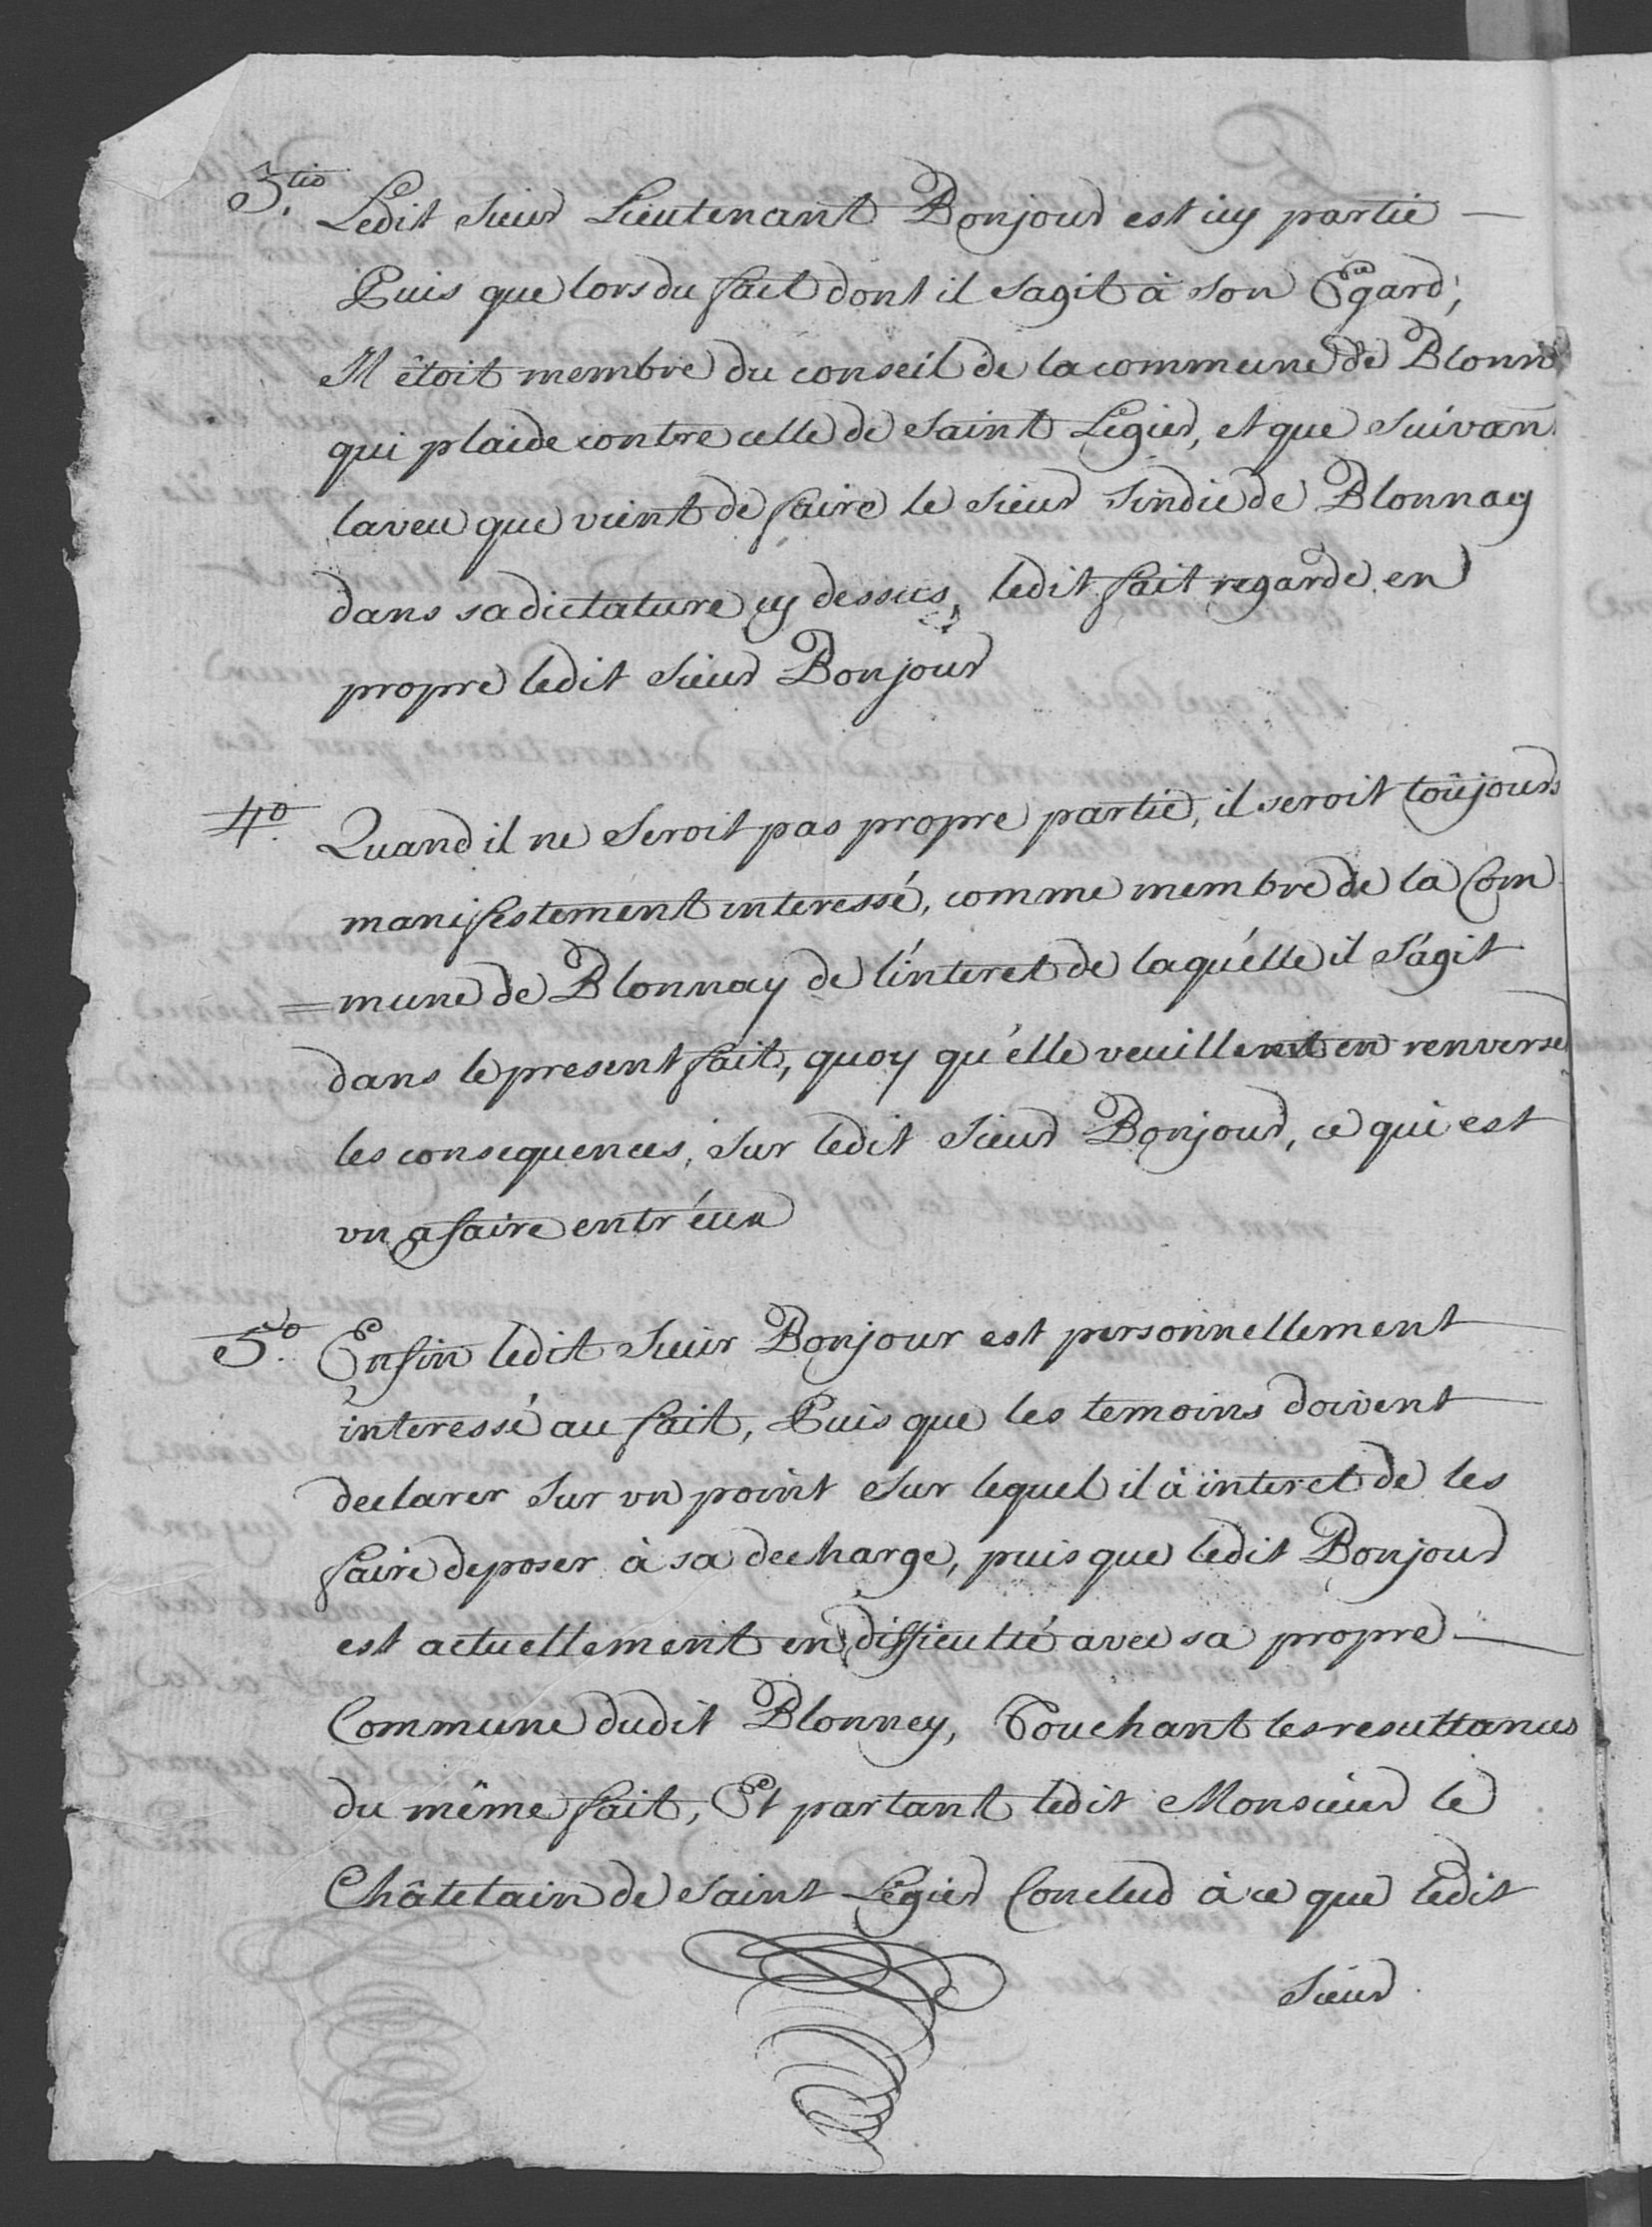 3.tio Ledit Sieur Lieutenant Bonjour est icy partie —
Puis que lors du fait dont il sagit à son Egard,
Il étoit membre du conseil de la commune de Blonn
qui plaide contre celle de Saint Légier, et que Suivan
laveu que vient de faire le Sieur Sindic de Blonnay
dans sa dictature cy dessus, ledit fait regarde en
propre ledit Sieur Bonjour
4.o Quand il ne Seroit pas propre partie, il seroit toûjours
manifestement interessé, comme membre de la Com
=mune de Blonnay de l'interet de laquélle il S'agit
dans le present fait, quoy qu'élle veuillent en renverser
les consequences, Sur ledit Sieur Bonjour, ce qui est
vn afaire entr'eux
5.o Enfin ledit Sieur Bonjour est personnellement
interessé au fait, Puis que les temoins doivent
declarer Sur vn point Sur lequel il à interet de les
faire deposer à sa decharge, puis que ledit Bonjour
est actuellement en difficulté avec sa propre —
Commune dudit Blonney, Touchant les resultances
du même fait, Et partant ledit Monsieur le
Châtelain de Saint Légier Conclud à ce que ledit
Sieur